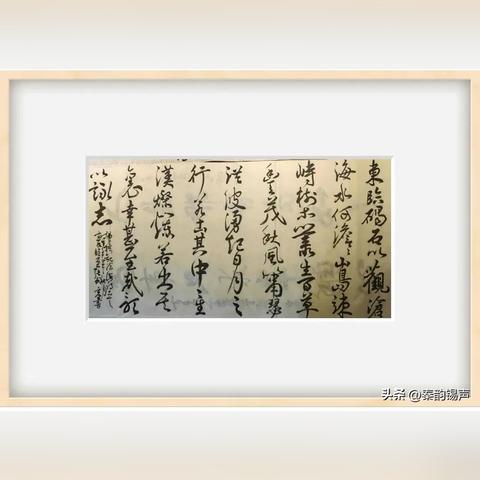 東臨碣石以觀滄
海水何澹々山島竦
峙樹木叢生百草
豐茂秋風蕭瑟
洪波湧起日月之
行若出其中星
漢燦爛若出其
裏幸甚至哉歌
以詠志
头条 @秦韵锡声